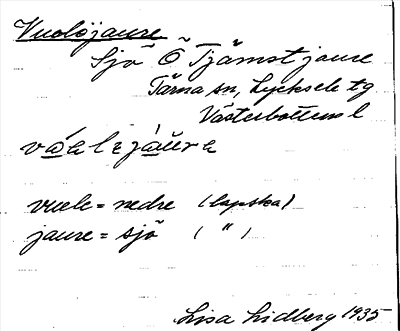 Vuoløjaure
Sjö Ö Tjämstjaure
Tärna sn, Lycksele tg
Västerbottens l
vuele = nedre (lapska)
jaure = sjö ( " )
Lisa Lidberg 1935